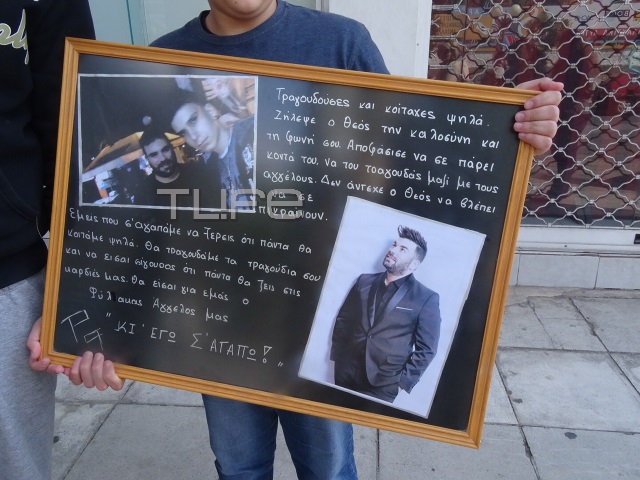 Τραγουδούσες και κοίταχες ψηλά.
Ζήλεψε ο Θεός την καλοσύνη και
τη φωνή σου. Αποφάσισε να σε πάρει
κοντά του. Να του τραγουδάς μαζί με τους
αγγέλους. Δεν άντεχε ο Θεός να βλέπει
σε
πικραίνουν.
Εμείς που σ'αγαπάμε να ξερεις ότι πάντα θα
κοιτάμε ψηλά. Θα τραγουδάμε τα τραγούδια σου
και να εισαι σίγουρος ότι πάντα θα ζεις στις
καρδιές μας. Θα είσαι για εμάς ο
Φύλακας Άγγελος μας
"ΚΙ ΄ΕΓΩ Σ΄ΑΓΑΠΩ!"
TLIFE